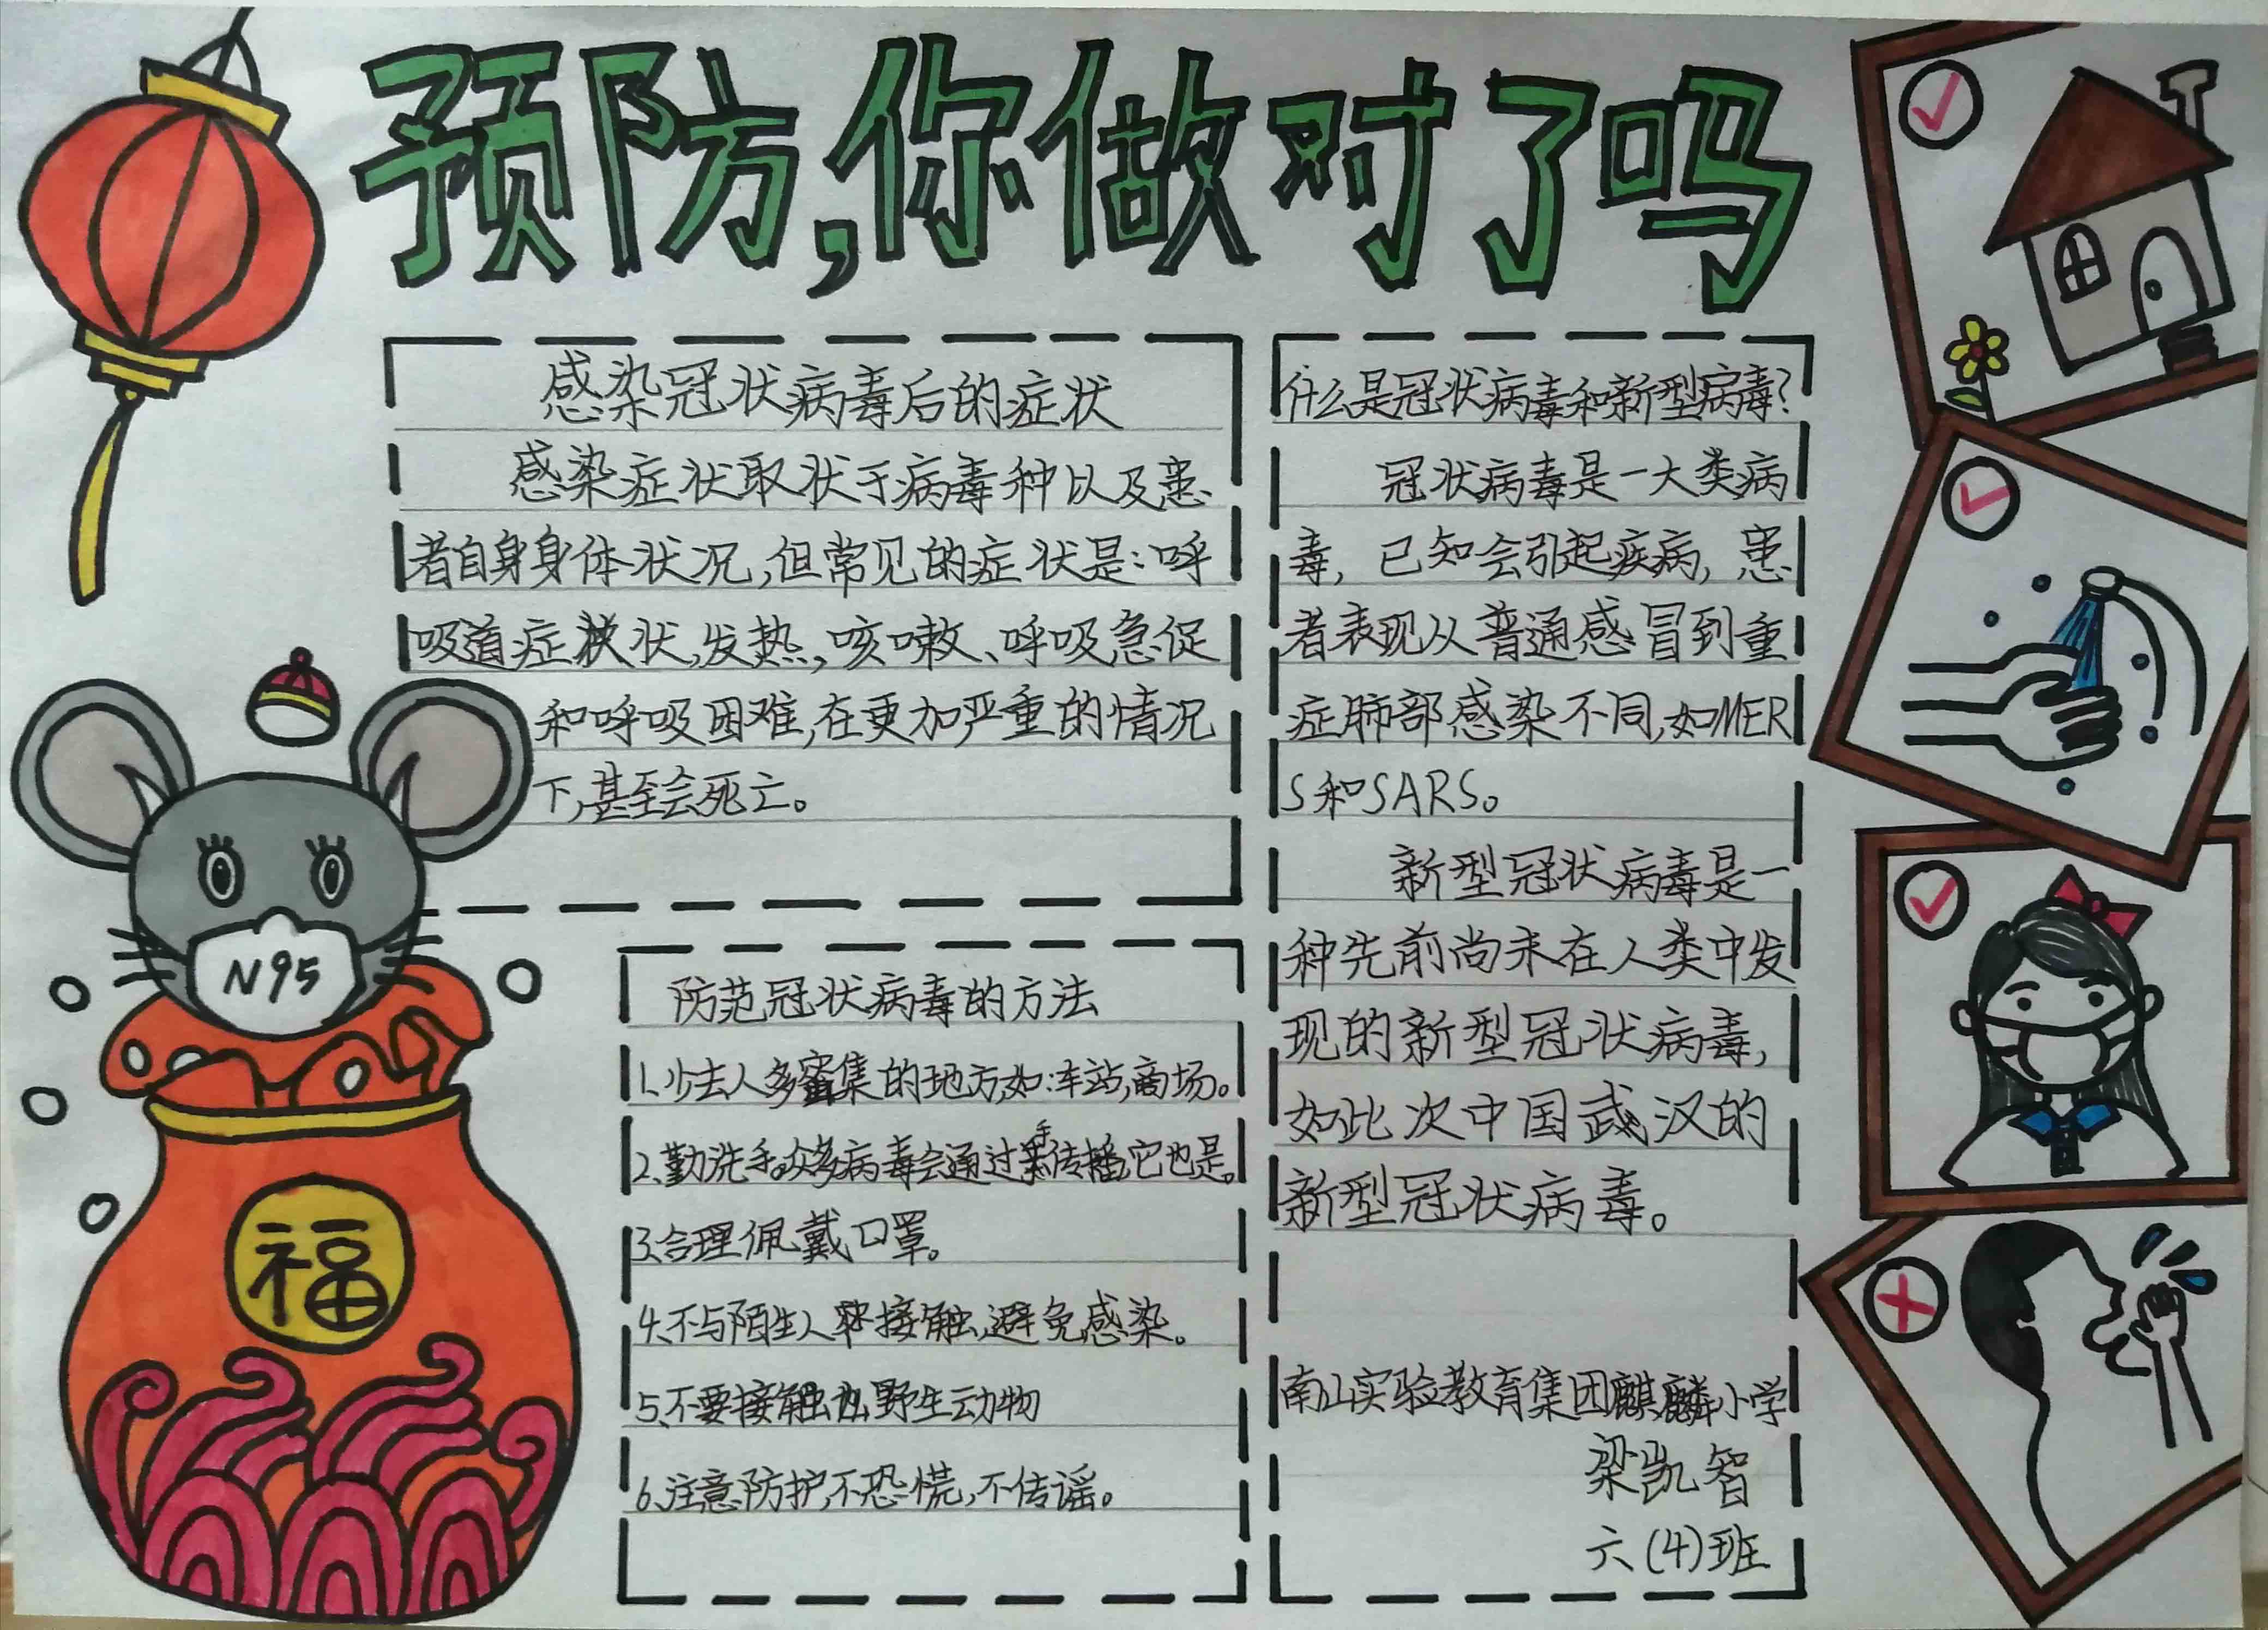 预防,你做对了吗
感染冠状病毒后的症状
感染症状取状于病毒种以及患
者自身身体状况,但常见的症状是:呼
吸道症状,发热,咳嗽、呼吸急促
和呼吸困难,在更加严重的情况
下,甚至会死亡。
什么是冠状病毒和新型病毒?
冠状病毒是一大类病
毒,已知会引起疾病,患
者表现从普通感冒到重
症肺部感染不同,如MER
S和SARS。
新型冠状病毒是一
种先前尚未在人类中发
现的新型冠状病毒,
如此次中国武汉的
新型冠状病毒。
南山实验教育集团麒麟小学
梁凯智
六(4)班
防范冠状病毒的方法
1.少去人多密集的地方,如:车站,商场。
2.勤洗手。众多病毒会通过手传播,它也是。
3.合理佩戴口罩。
4.不与陌生人接触,避免感染。
5.不要接触野生动物
6.注意防护,不恐慌,不传谣。
N95
福